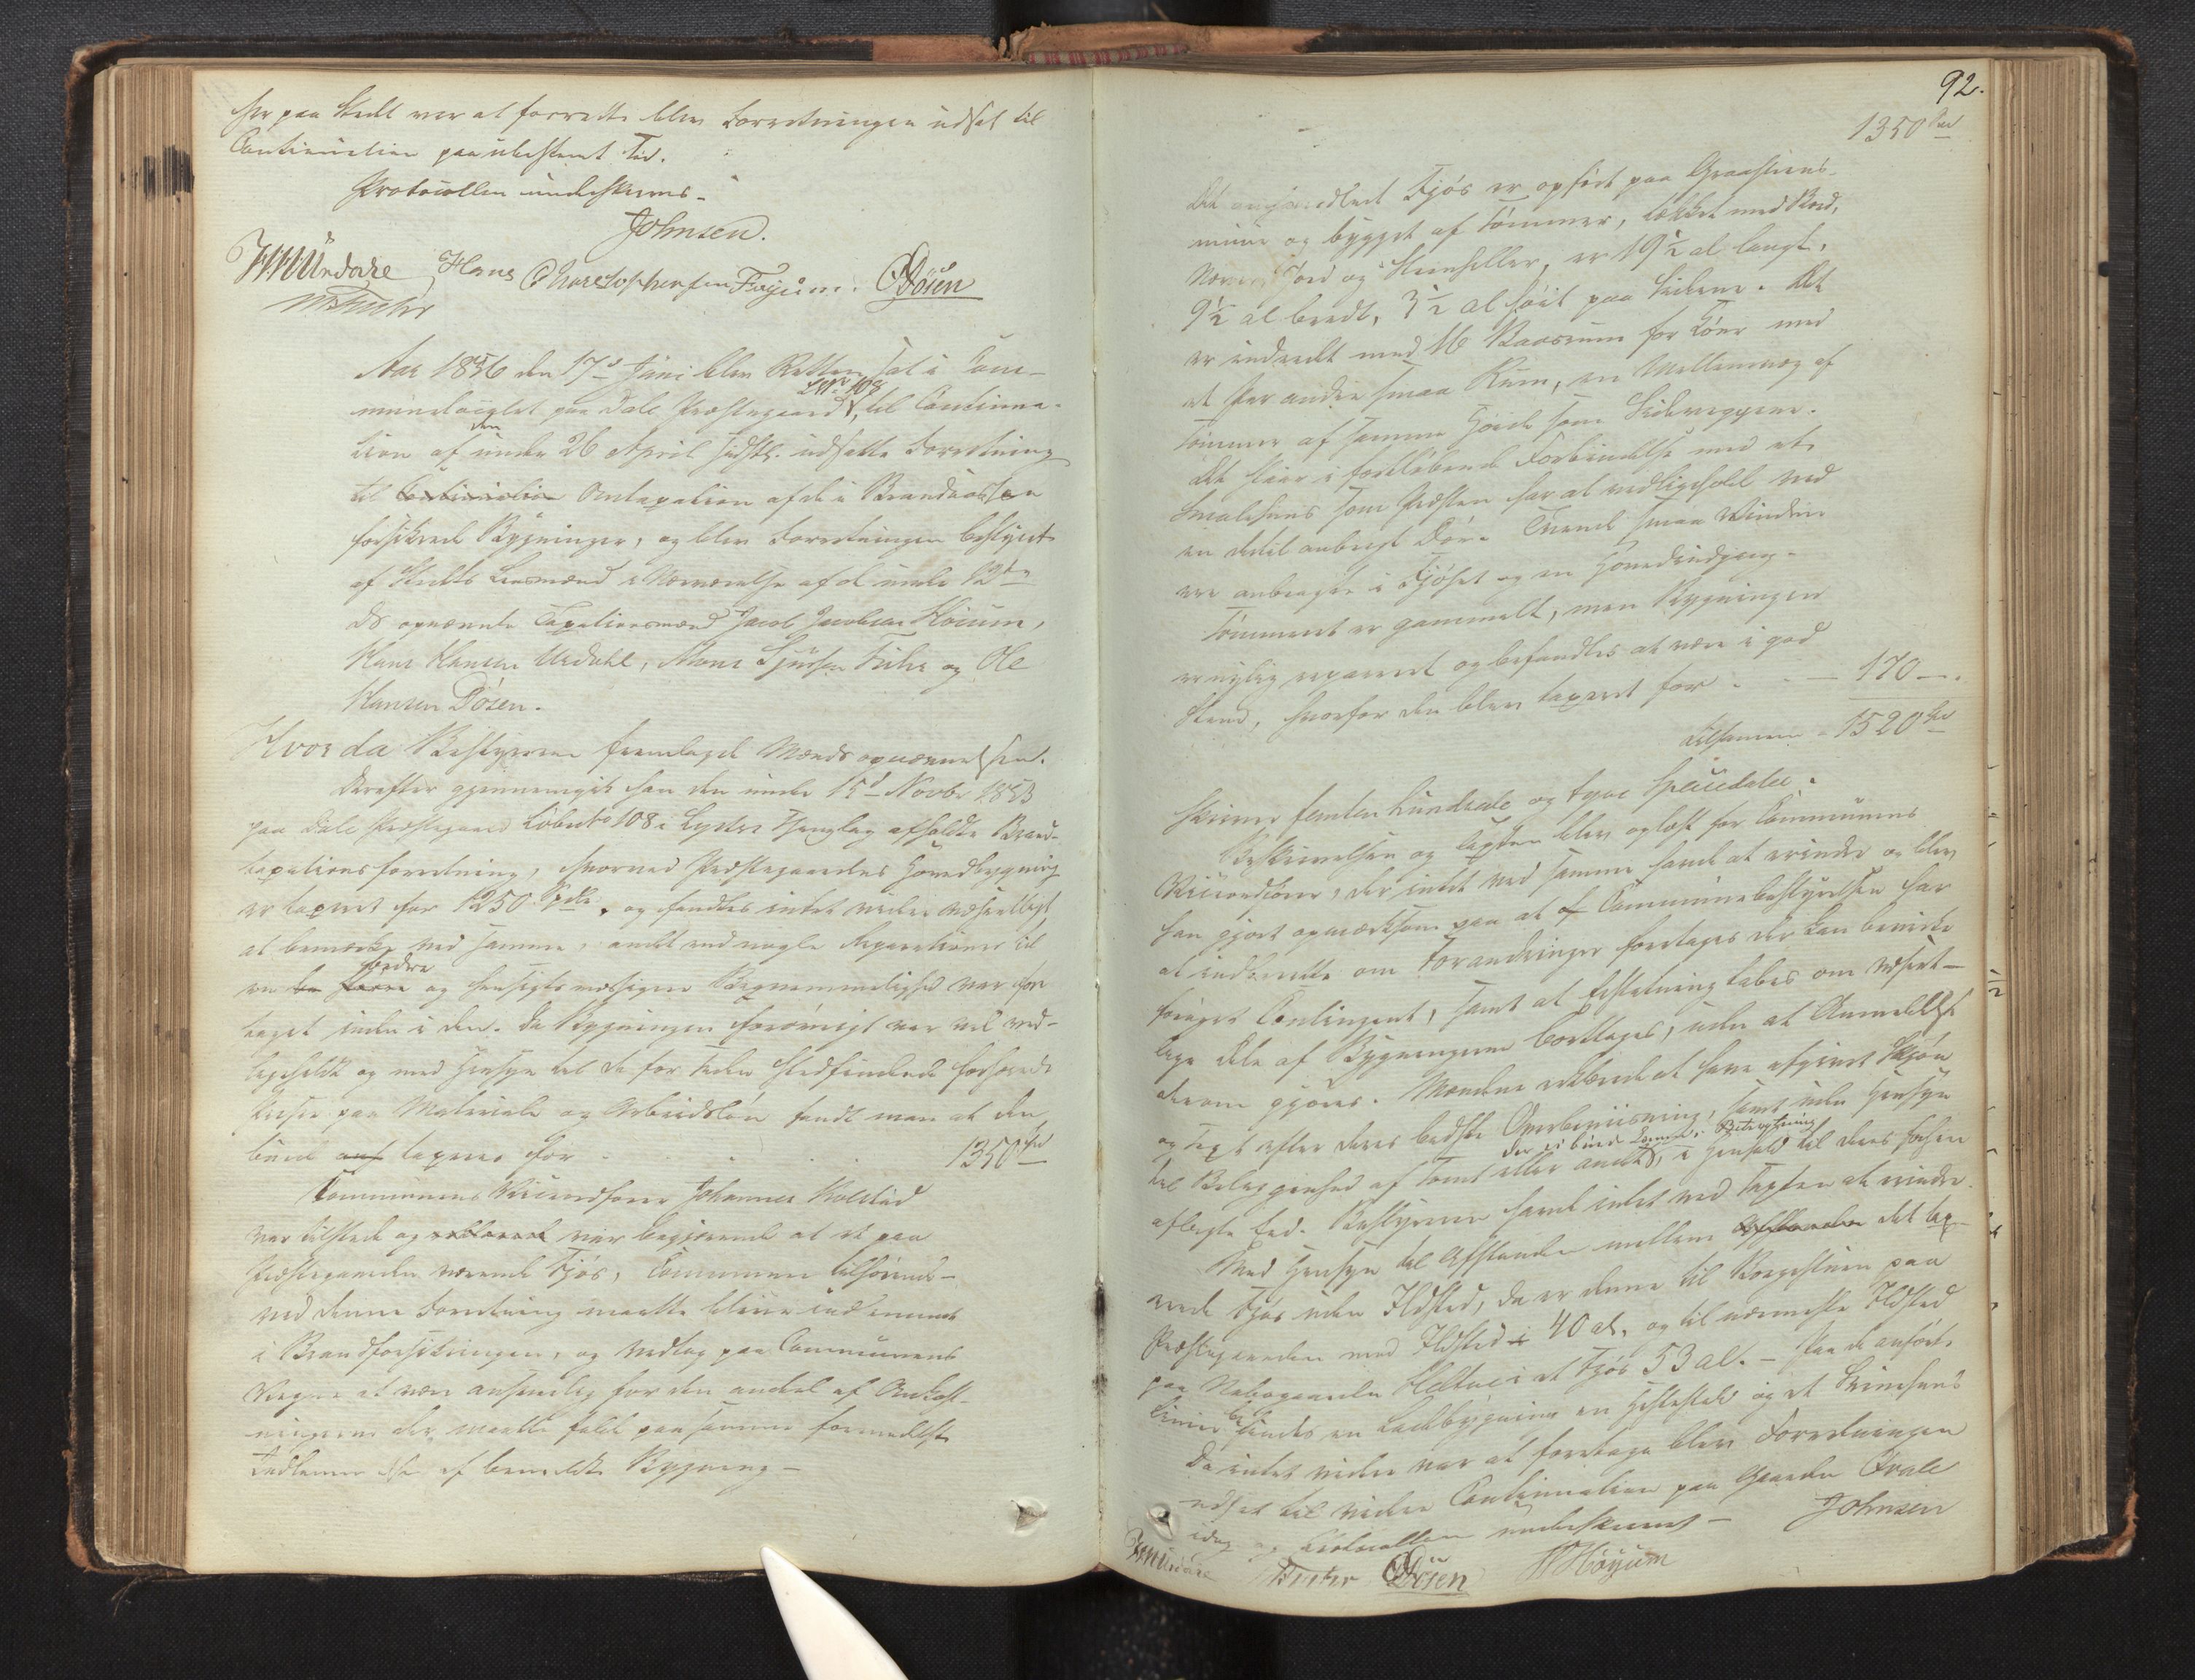 her paa Stedet var at forrette blev Forretningen udsat til
Continuation paa ubestemt Tid.
Protocollen underskreves.
Johnsen.
Hans Christophersen Føyum. ODøsen
Aar 1856 den 17de Juni blev Retten sat i Com-
munelocalet paa Dale Præstegaard LNo 108, til Continua-
tion af den under 26 April sidstl. udsatte Forretning
til Continuation Omtaxation af de i Brandcassen
forsikrede Bygninger, og blev Forretningen bestyret
af Stedets Lensmand i Nærværelse af de under 12te
ds opnævnte Taxationsmænd Jacob Jacobsen Høium,
Hans Hansen Urdahl, Mons Sjursen Fuhr og Ole
Hansen Døsen.
Hvor da Bestyreren fremlagde Mandsopnævnelsen.
Derefter gjennemgik han den under 15de Novbr 1853
paa Dale Præstegaard Løbenr 108 i Lysters Thinglag afholdte Brand-
taxationsforretning, hvorved Præstegaardens Hovedbygning
er taxeret for 1250 Spdlr, og fandtes intet videre væsentligt
at bemærke ved samme, andet end nogle Reparationer til
en bedre og hensigtsmæssigere Beqvemmelighed var fore
taget inde i den. Da Bygningen forøvrigt var vel ved-
ligeholdt og med Hensyn til de for Tiden stedfindende forhøiede
Priser paa Materiale og Arbeidsløn fandt man at den
burde taxeres for . . . . 1350 Spd
Communens Viceordfører Johannes Kolstad
var tilstede og erklærede var begjærende at et paa
Præstegaarden værende Fjøs, Communen tilhørende
ved denne Forretning maatte blive indlemmet
i Brandforsikringen, og vedtog paa Communens
Vegne at være ansvarlig for den andel af Omkost-
ningerne der maatte falde paa samme formedelst
Indlemmelse af bemeldte Bygning –
92.
1350 Spd
Det omhandlede Fjøs er opført paa Graasteens-
muur og bygget af Tømmer, tækket med Bord,
Næver, Tord og Steenheller, er 19½ al langt,
9½ al bredt, 3½ al høit paa Siderne. Det
er indredt med 16 Baasrum for Kjør med
et Par andre smaa Rum, en Mellemvæg af
Tømmer af samme Høide som Sidevæggene.
Det staar i fortløbende Forbindelse med et
Smalehuus som Præsten har at vedligeholde ved
en dertil anbragt Dør. Tvende smaa Vinduer
ere anbragte i Fjøset og en Hovedindgang.
Tømmeret er gammelt, men Bygningen
er nylig repareret og befandtes at være i god
Stand, hvorfor den blev taxeret for . . — 170 — .
tilsammen - 1520 Spd
skriver femten Hundrede og tyve Speciedaler.
Beskrivelsen og Taxten blev oplæst for Communens
Viceordfører, der intet ved samme havde at erindre og blev
han gjort opmærksom paa at Communebestyrelsen har
at indberette om Forandringer foretages der kan bevirke
forøget Contingent, samt at Erstatning tabes om væsent-
lige Dele af Bygningerne borttages, uden at Anmeldelse
derom gjøres. Mændene erklærede at have afgivet Skjøn
og Taxt efter deres bedste Overbeviisning, samt uden Hensyn
til Beliggenhed af Tomt eller andet, der ei burde komme i Betragtning, i Henhold til deres forhen
aflagte Eed. Bestyreren havde intet ved Taxten at erindre.
Med Hensyn til Afstanden mellem Afstanden det tax-
erede Fjøs uden Ildsted, da er denne til Borgestuen paa
Præstegaarden med Ildsted 40 al. og til nærmeste Ildsted
paa Nabogaarden i et Fjøs 53 al. – Paa de anførte
Linier findes en Ladebygning en Hestestald og et Svinehuus
Da intet videre var at foretage blev Forretningen
udsat til videre Continuation paa Gaarden Qvale
idag og Protocollen underskreves –
Johnsen
ODøsen Høyum